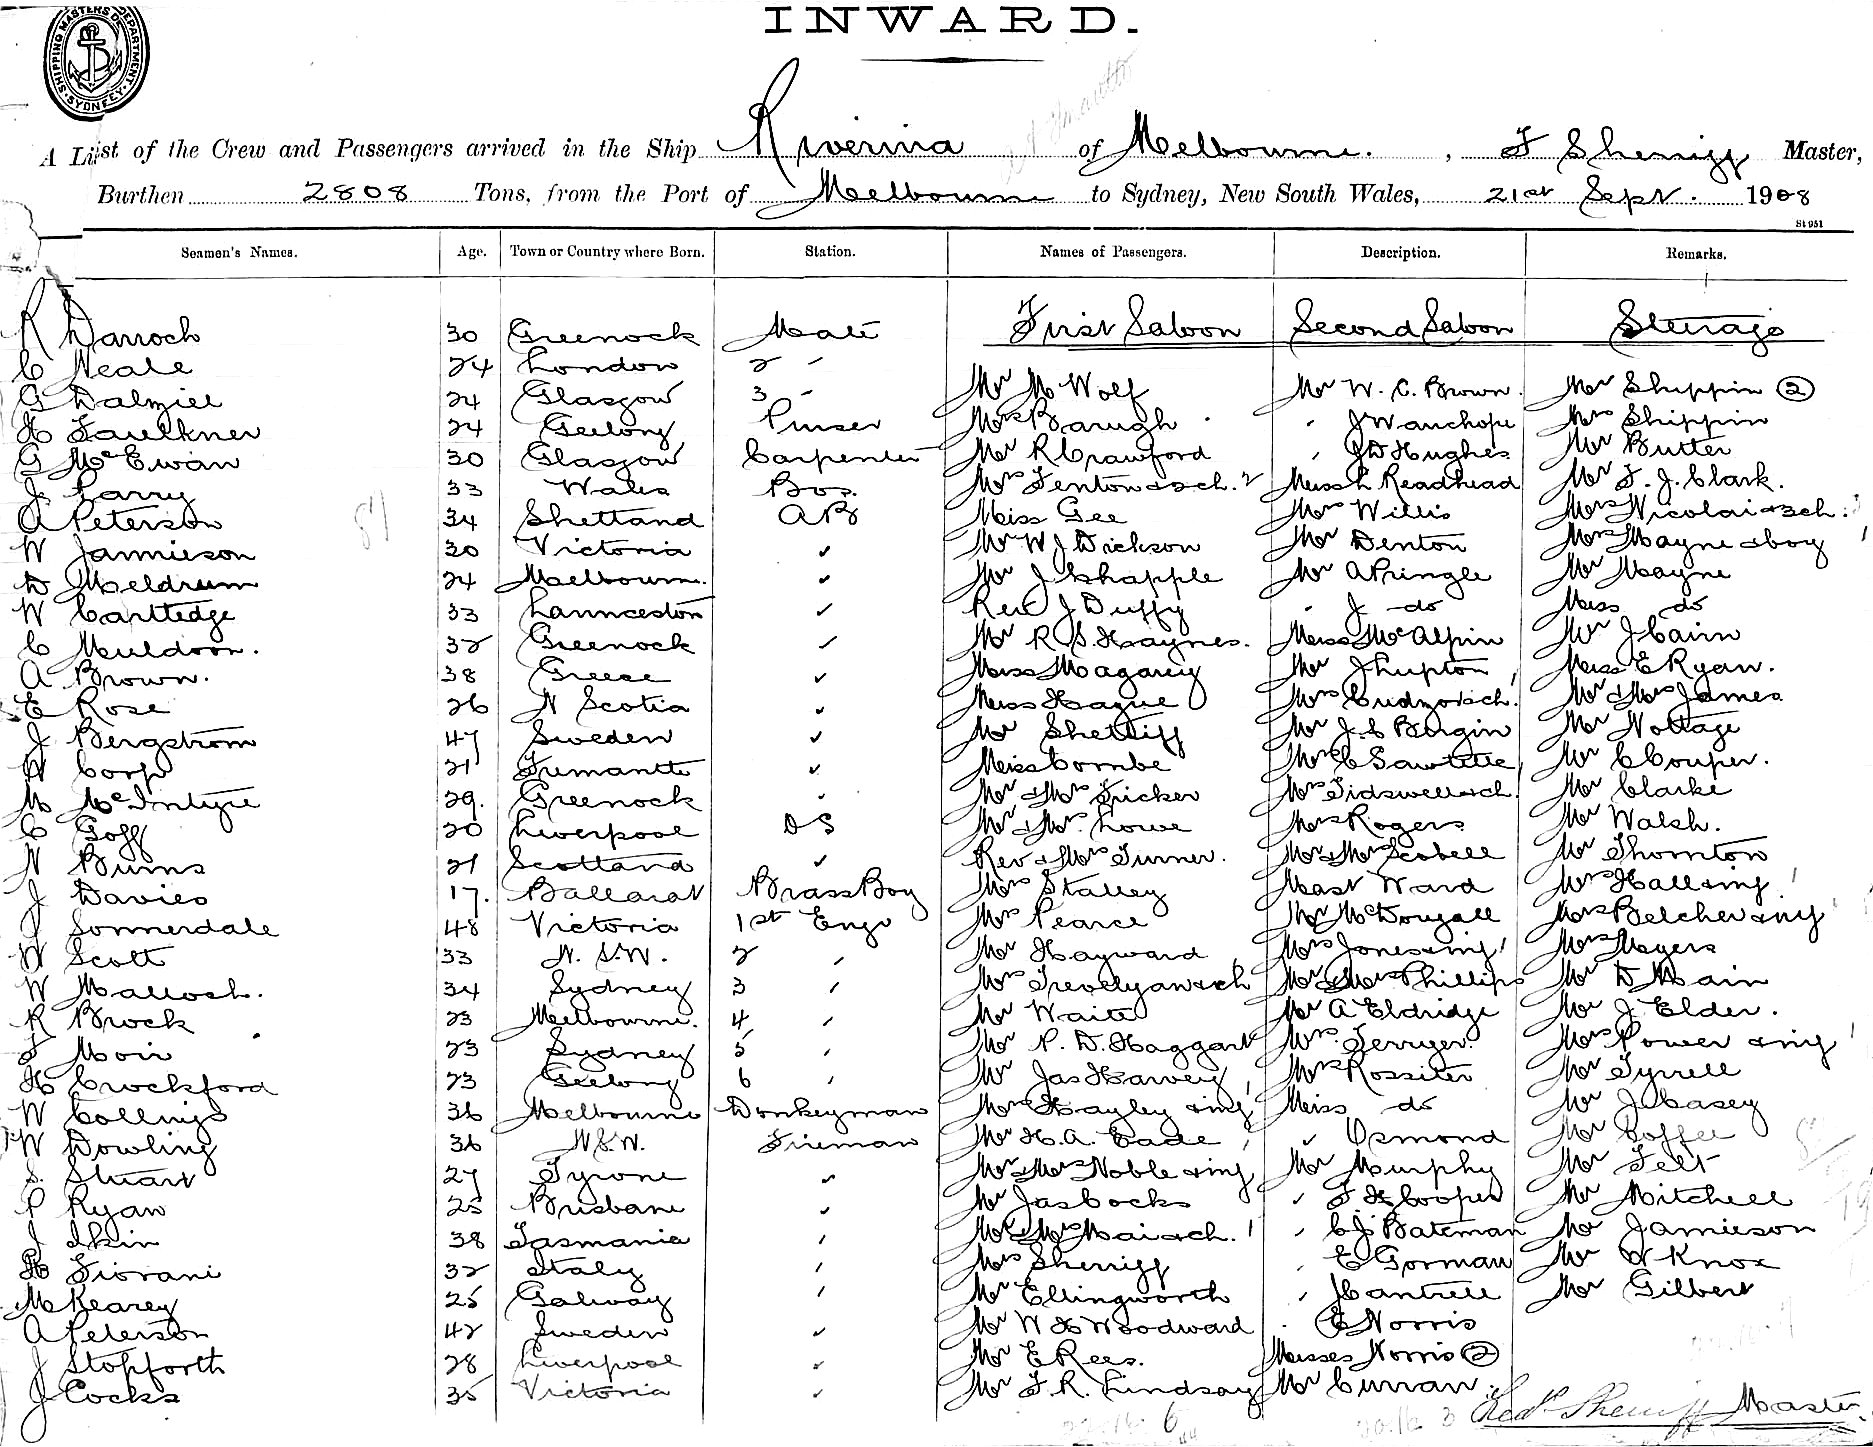 INWARD.
SHIPPING MASTERS DEPARTMENT
SYDNEY
A List of the Crew and Passengers arrived in the Ship Riverina of Melbourne. , F Sherriff Master,
Burthen 2808 Tons, from the Port of Melbourne to Sydney, New South Wales, 21st Sept. 1908
St 951
Seamen's Names. Age. Town or Country where Born. Station. Names of Passengers. Description. Remarks.
R Darroch 30 Greenock Mate First Saloon Second Saloon Steerage
C Neale 24 London 2 "
G Dalziel 24 Glasgow 3 " Mr M Wolf Mr W. C. Brown. Mr Shippin (2)
H Faulkner 24 Geelong Purser Mrs Baugh " J Wanchope Mrs Shippin
G McEwan 30 Glasgow Carpenter Mr R Crawford " J D Hughes Mr Butter
J Parry 33 Wales Bos. Mrs Fenton & sch. 2 Miss L Readhead Mr F. J. Clark.
A Peterson 34 Shetland AB Miss Gee Mrs Willis Mrs Nicolai & 3ch.
W Jammieson 30 Victoria " Mr W J Dickson Mr Denton Mrs Mayne & boy
D Meldrum 24 Melbourne. " Mr J Chapple Mr A Pringle Mr Mayne
W Carttedge 33 Launceston " Rev J Duffy " J do Miss do
C Muldoon. 32 Greenock " Mr R. S. Haynes. Miss McAlpin Mr J Cairn
A Brown. 38 Greece " Miss Magarey Mr J Lupton Miss E Ryan.
E Rose 26 N Scotia " Miss Hague Mrs & sch. Mr & Mrs James
J Bergstrom 47 Sweden " Mr Shettiff Mr J. C Bergin Mr Nottage
W Corp 21 Fremantle " Miss Combe Mr C Sawtelle Mr C Couper.
M McIntyre 29. Greenock " Mr & Mrs Fricker Mrs Tidswell & ch. Mr Clarke
C Goff 20 Liverpool DS Mr & Mrs Lowe Mrs Rogers Mr Walsh.
N Burns 21 Scotland " Rev & Mrs Turner. Mr & Mrs Scobell Mr Thornton
J Davies 17. Ballarat Brass Boy Mrs Stalley Mast Ward Mrs Hall & inf 1
J Sonnerdale 48 Victoria 1st Engr Mrs Pearce Mr McDougall Mrs Belcher & inf 1
W Scott 33 N. S. W. 2 " Mr Hayward Mrs Jones & inf 1 Mrs Meyers
W Malloch. 34 Sydney 3 " Mrs Trevelyan & sch Mr & Mrs Phillips Mr D Main
R Brock 23 Melbourne. 4 " Mr Waite Mr A Eldridge Mr J Elder.
J Moir 23 Sydney 5 " Mr P. D. Haggart Mrs Terryer. Mrs Power & inf 1
H Crockford 23 Geelong 6 " Mr Jas Harvey Mrs Rossiter Mr Tyrrell
W Collings 36 Melbourne Donkeyman Mrs Hayley & inf 1 Miss do Mr J Casey
W Dowling 36 N.S.W. Fireman Mr H. A. Eade " Osmond Mr Coffee
S. Stuart 27 Tyrone " Mr & Mrs Noble & inf Mr Murphy Mr Felt
P Ryan 25 Brisbane " Mr Jas Cocks " F H Cooper Mr Mitchell
J Ikin 38 Tasmania " Mr & Mrs Mai & ch. 1 " C J Bateman Mr Jamieson
H Fiorani 32 Italy " Mrs Sherriff " E Gorman Mr W Knox
M Kearey 25 Galway " Mr Ellingworth " J Cantrell Mr Gilbert
A Peterson 42 Sweden " Mr W H Woodward " E Norris
J Stopforth 28 Liverpool " Mr E Rees. Misses Norris (2)
J Cocks 35 Victoria " Mr F. R. Lindsay Mr Curran.
Fredk Sherriff Master.